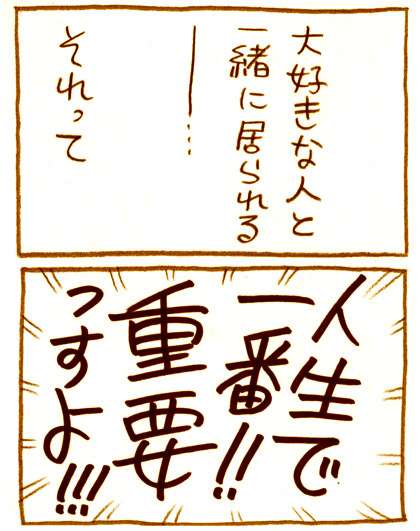 大好きな人と
一緒に居られる
――…
それって
人生で
一番!!
重要
っすよ!!!